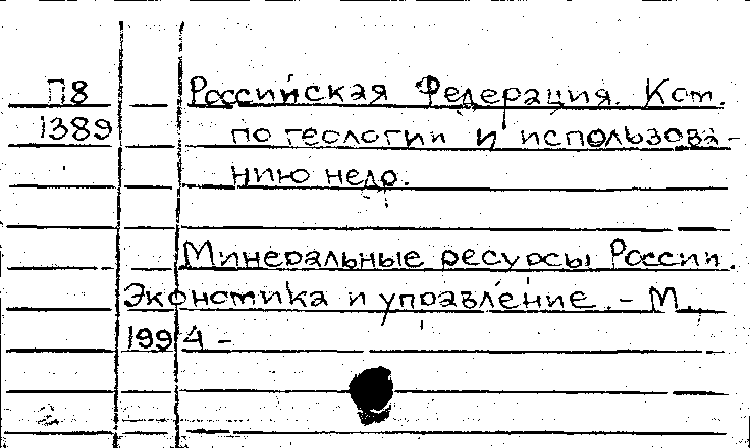 П8 Российская Федерация. Ком.
1389 по геологии и использова-
нию недр.
Минеральные ресурсы России.
Экономика и управление. - М.,
1994 -